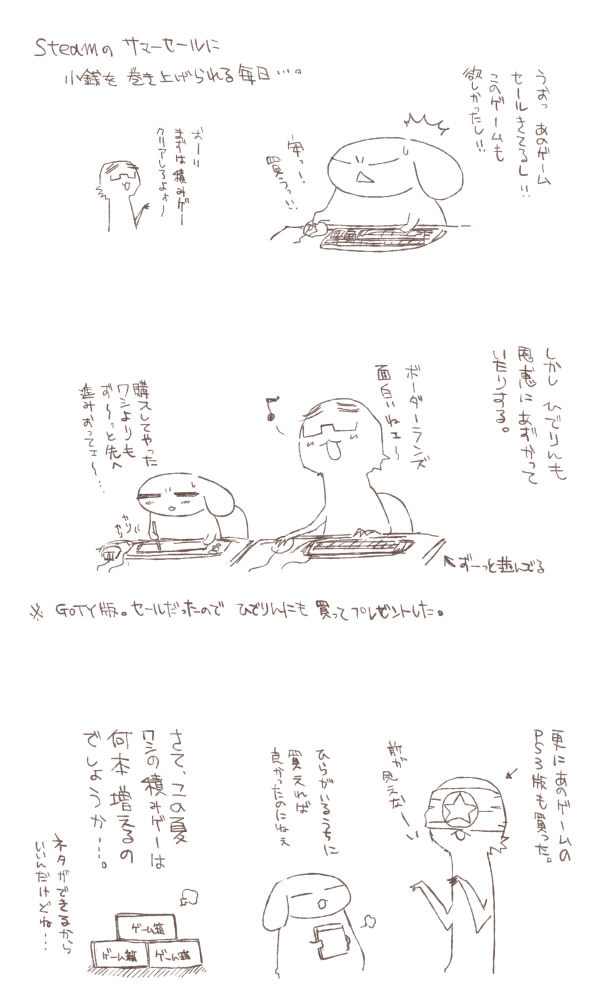 Steamの サマーセールに
小銭を 巻き上げられる毎日…。
うおっ あのゲーム
セールきてるし!!
このゲームも
欲しかったし!!
買うっ!!
おーい
まずは積みゲー
クリアしろよォ〜
しかし ひでりんも
恩恵にあずかって
いたりする。
ボーダーランズ
面白いねェ〜
購入してやった
ワシよりも
ず〜〜っと先へ
進みおってェ〜…
ずーっと遊んでる
※ GOTY版。セールだったので ひでりんにも 買ってプレゼントした。
更にあのゲームの
PS3版も買った。
前が見えなーい
買えれば
良かったのにねぇ
さて、この夏
ワシの積みゲーは
何本 増えるの
でしょうか…。
ネタができるから
いいんだけどね…
ゲーム箱
ゲーム箱
ゲーム箱